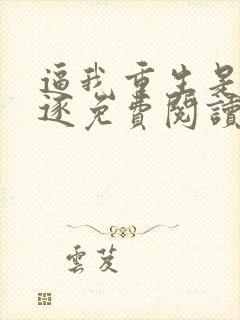 逼我重生是
逐免費閱讀
雲芨